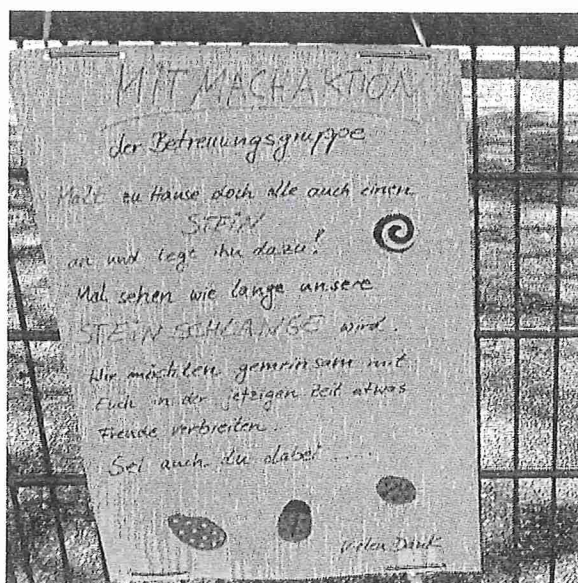 MITMACHAKTION
der Betreuungsgruppe
Malt zu Hause doch alle auch einen
STEIN
an und legt ihn dazu!
Mal sehen wie lange unsere
STEINSCHLANGE wird.
Wir möchten gemeinsam mit
Euch in der jetzigen Zeit etwas
Freude verbreiten.
Sei auch du dabei ....
Vielen Dank